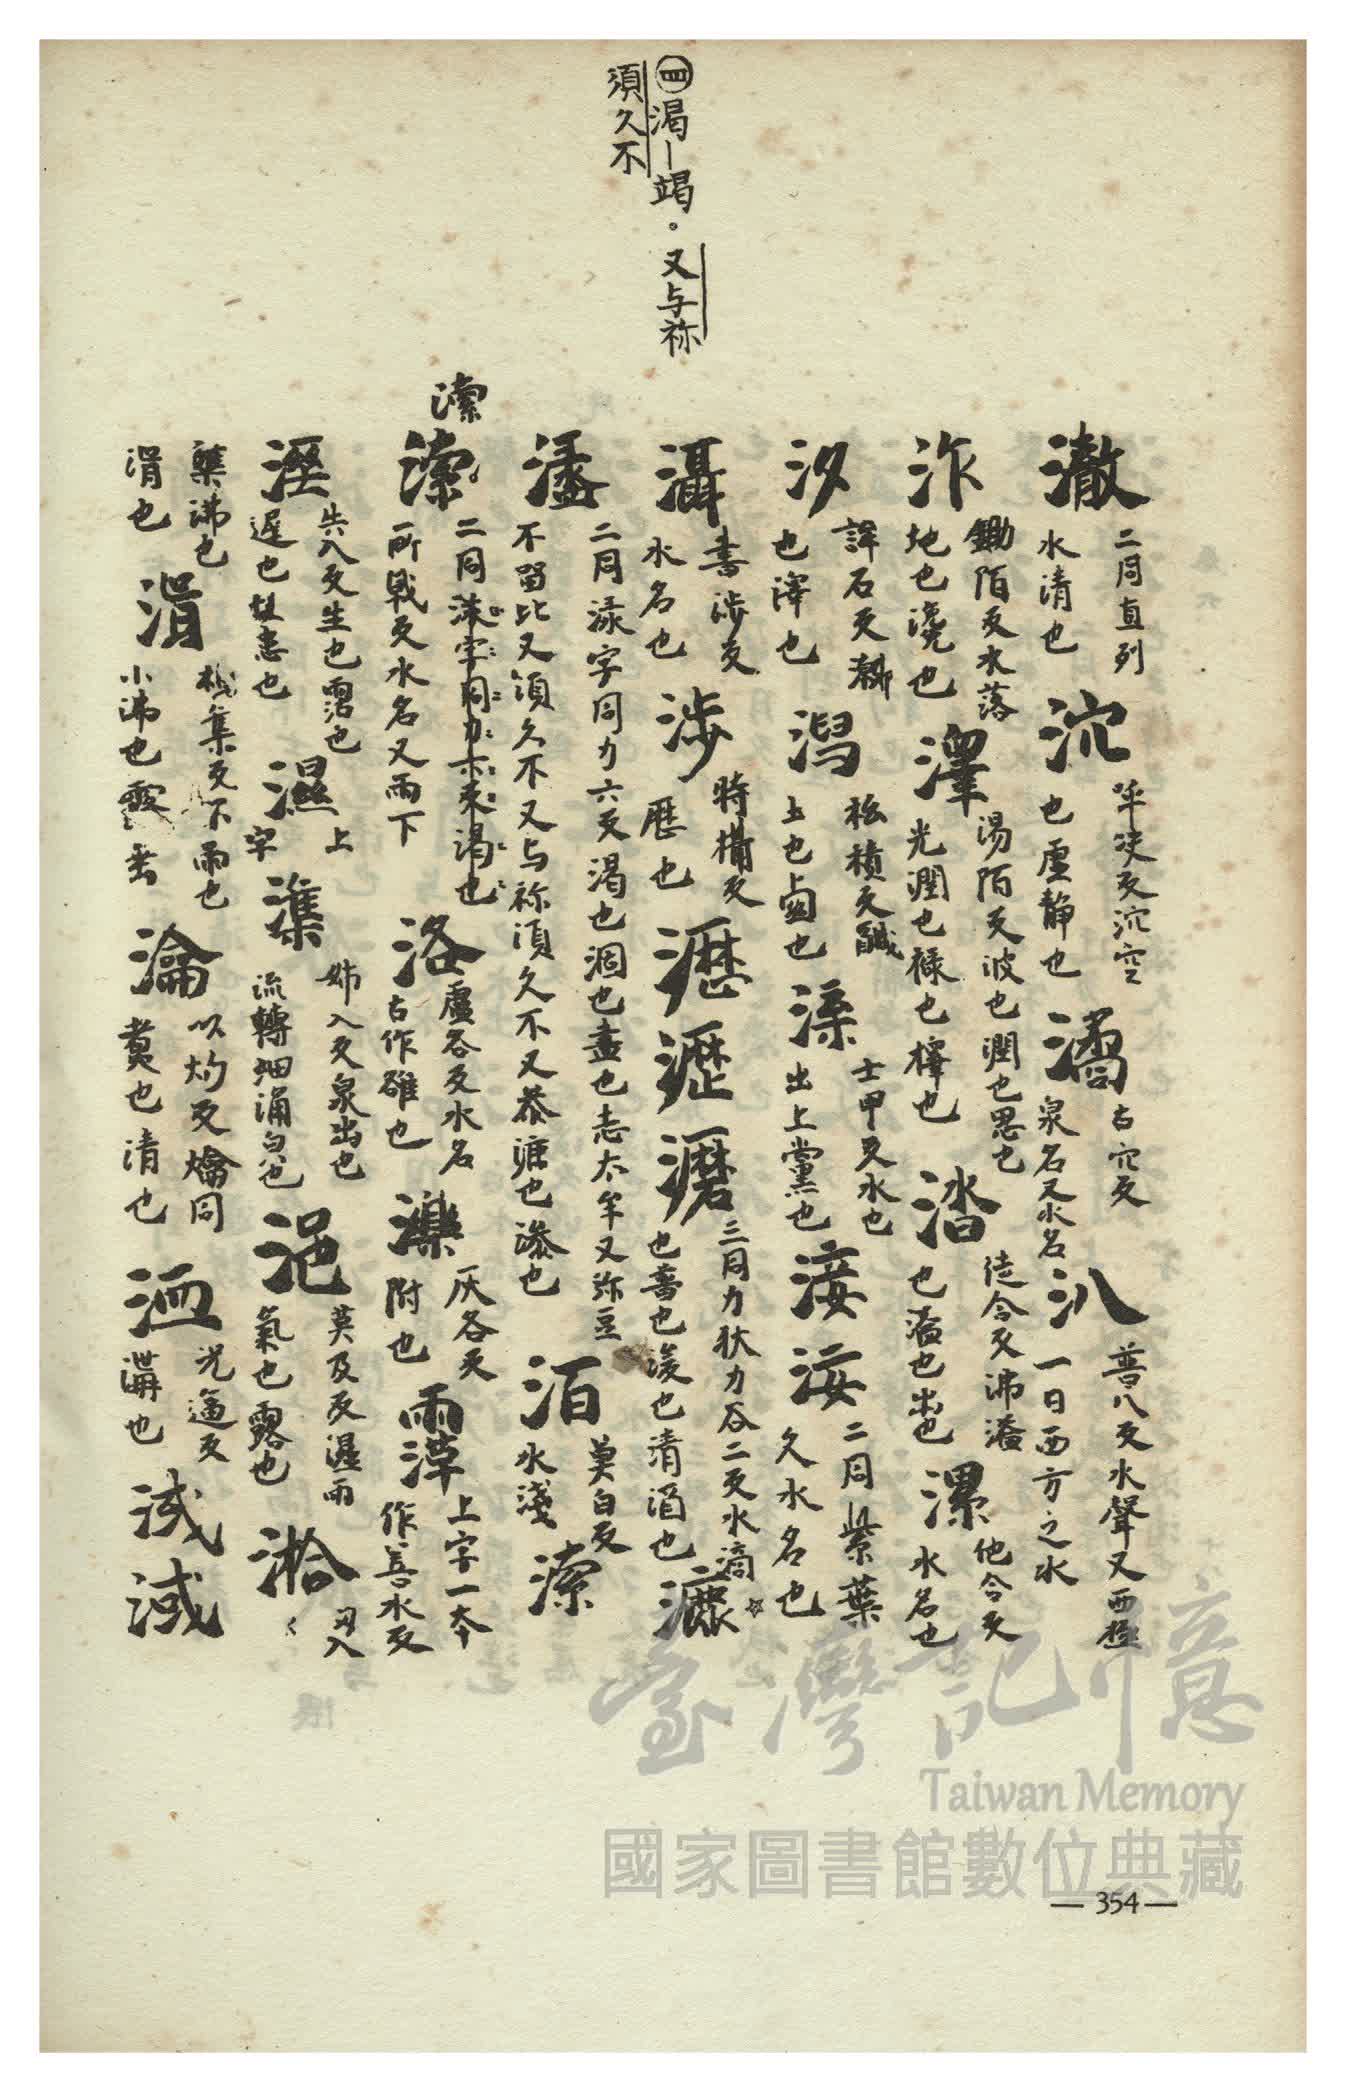 ㈣渴—竭。又与祢
須久不
澈 二同直列 水清也 泬 呼决反泬空 也虛静也 潏 古穴反 泉名又水名 汃 普八反水聲又西極 一曰西方之水
泎 鋤陌反水落 地也瀺也 澤 湯陌反波也潤也恩也 光潤也祿也檡也 涾 徒合反沸溢 也溢也出也 漯 他合反 水名也
汐 詳石反 也澤也 潟 松積反鹹 土也鹵也 渫 士甲反水也 出上黨也 淁 㳌 二同紫葉 反水名也
灄 書涉反 水名也 涉 時攝反 歷也 瀝 三同力狄力谷二反水滴 也善也淩也清酒也
盝 二同渌字同力六反渴也涸也盡也志太牟又弥豆 不留比又須久不又与祢須久不又恭漉也滲也 洦 莫白反 水淺 溹
溹
溹 二同 字同力 渴也 所戟反水名又雨下 洛 盧各反水名 古作雒也 濼 灰各反 附也 上字一本 作 水反
溼 失入反生也霑也 遲也 恚也 濕 上字 潗 姊入反泉出也 流轉细涌皃也 浥 莫及反濕雨 氣也露也 湁 丑入
檕沸也 涓也 㵕 集反下雨也 小沸也 瀹 以灼反爚同 煑也清也 洫 光逼反 溝也 淢 淢
— 354 —
臺灣記憶
Taiwan Memory
國家圖書館數位典藏